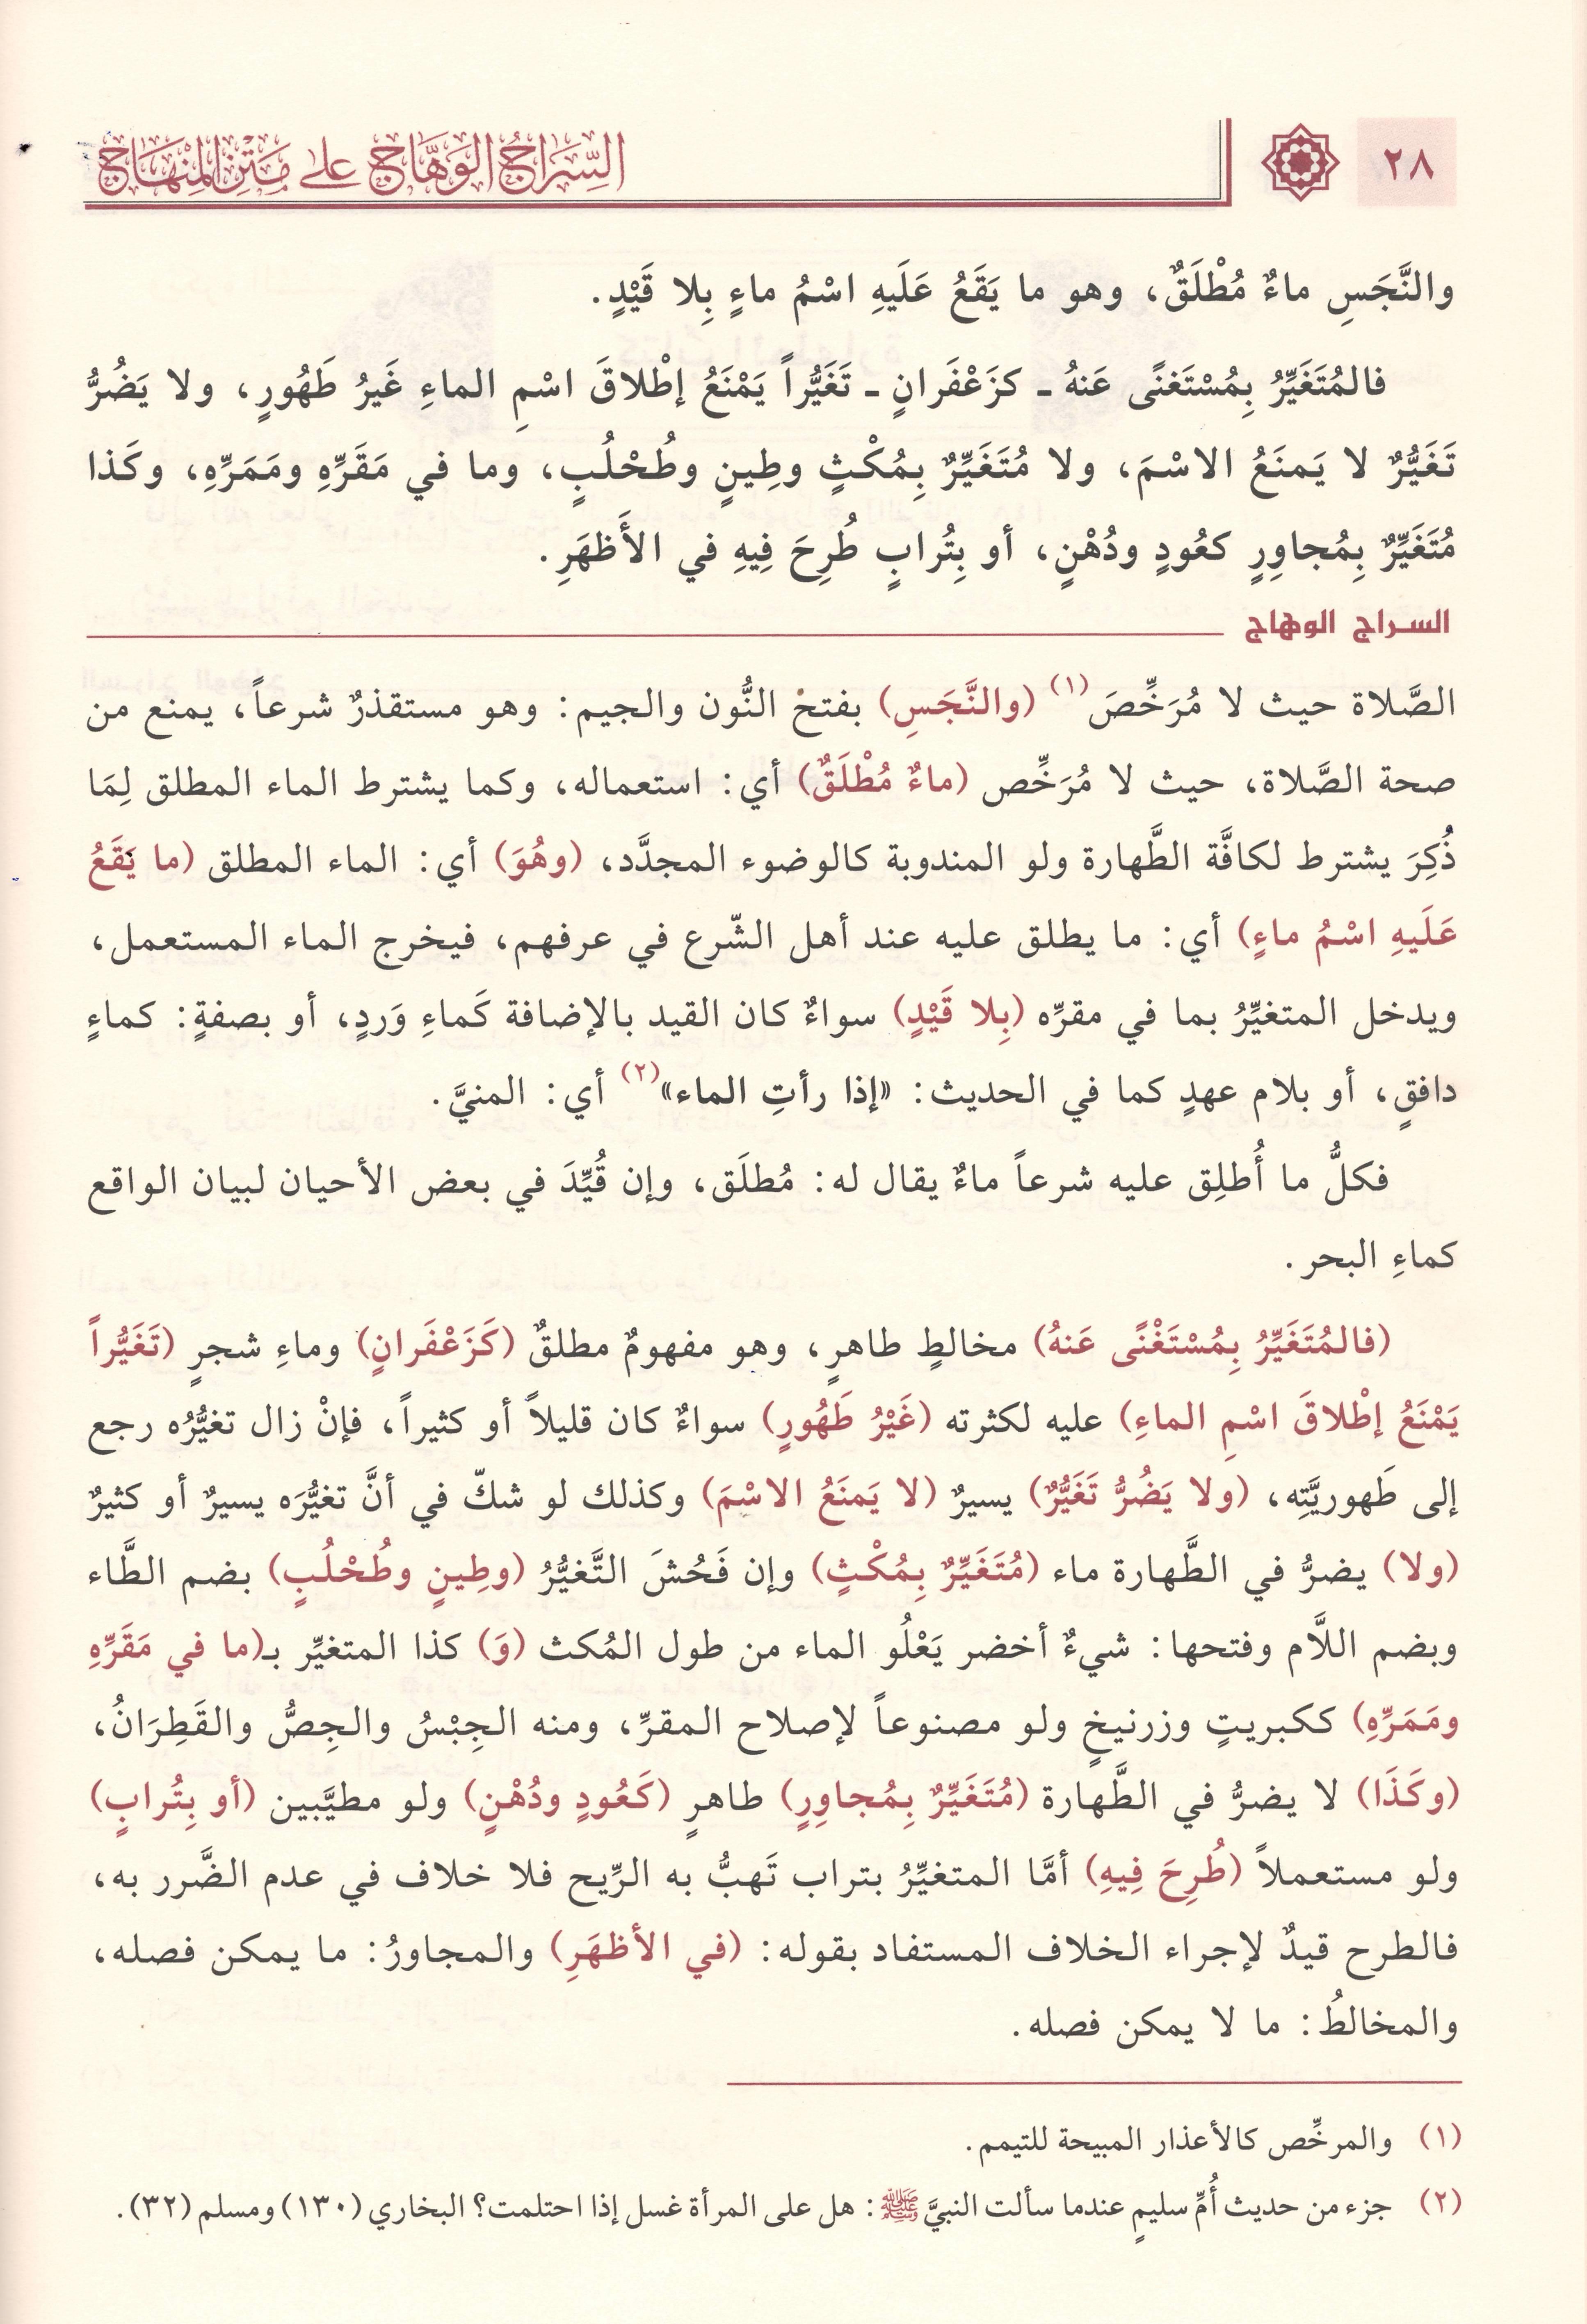 ٢٨
السِّرَاجُ الوَهَّاجُ على مَتْنِ المِنْهَاجِ
والنَّجَسِ ماءٌ مُطْلَقٌ، وهو ما يَقَعُ عَلَيهِ اسْمُ ماءٍ بِلا قَيْدٍ.
فالمُتَغَيِّرُ بِمُسْتَغنًى عَنهُ ـ كزَعْفَرانٍ ـ تَغَيُّراً يَمْنَعُ إطْلاقَ اسْمِ الماءِ غَيرُ طَهُورٍ، ولا يَضُرُّ
تَغَيُّرٌ لا يَمنَعُ الاسْمَ، ولا مُتَغَيِّرٌ بِمُكْثٍ وطِينٍ وطُحْلُبٍ، وما في مَقَرِّهِ ومَمَرِّهِ، وكَذا
مُتَغَيِّرٌ بِمُجاوِرٍ كعُودٍ ودُهْنٍ، أو بِتُرابٍ طُرِحَ فِيهِ في الأَظهَرِ.
السراج الوهاج
الصَّلاة حيث لا مُرَخِّصَ(١) (والنَّجَسِ) بفتح النُّون والجيم: وهو مستقذرٌ شرعاً، يمنع من
صحة الصَّلاة، حيث لا مُرَخِّص (ماءٌ مُطْلَقٌ) أي: استعماله، وكما يشترط الماء المطلق لِمَا
ذُكِرَ يشترط لكافَّة الطَّهارة ولو المندوبة كالوضوء المجدَّد، (وهُوَ) أي: الماء المطلق (ما يَقَعُ
عَلَيهِ اسْمُ ماءٍ) أي: ما يطلق عليه عند أهل الشّرع في عرفهم، فيخرج الماء المستعمل،
ويدخل المتغيِّرُ بما في مقرِّه (بِلا قَيْدٍ) سواءٌ كان القيد بالإضافة كَماءِ وَردٍ، أو بصفةٍ: كماءٍ
دافقٍ، أو بلام عهدٍ كما في الحديث: «إذا رأتِ الماء»(٢) أي: المنيَّ.
فكلُّ ما أُطلِق عليه شرعاً ماءٌ يقال له: مُطلَق، وإن قُيِّدَ في بعض الأحيان لبيان الواقع
كماءِ البحر.
(فالمُتَغَيِّرُ بِمُسْتَغْنًى عَنهُ) مخالطٍ طاهرٍ، وهو مفهومٌ مطلقٌ (كَزَعْفَرانٍ) وماءِ شجرٍ (تَغَيُّراً
يَمْنَعُ إطْلاقَ اسْمِ الماءِ) عليه لكثرته (غَيْرُ طَهُورٍ) سواءٌ كان قليلاً أو كثيراً، فإنْ زال تغيُّرُه رجع
إلى طَهوريَّتِه، (ولا يَضُرُّ تَغَيُّرٌ) يسيرٌ (لا يَمنَعُ الاسْمَ) وكذلك لو شكّ في أنَّ تغيُّرَه يسيرٌ أو كثيرٌ
(ولا) يضرُّ في الطَّهارة ماء (مُتَغَيِّرٌ بِمُكْثٍ) وإن فَحُشَ التَّغيُّرُ (وطِينٍ وطُحْلُبٍ) بضم الطَّاء
وبضم اللَّام وفتحها: شيءٌ أخضر يَعْلُو الماء من طول المُكث (وَ) كذا المتغيِّر بـ(ما في مَقَرِّهِ
ومَمَرِّهِ) ككبريتٍ وزرنيخٍ ولو مصنوعاً لإصلاح المقرِّ، ومنه الجِبْسُ والجِصُّ والقَطِرَانُ،
(وكَذَا) لا يضرُّ في الطَّهارة (مُتَغَيِّرٌ بِمُجاوِرٍ) طاهرٍ (كَعُودٍ ودُهْنٍ) ولو مطيَّبين (أو بِتُرابٍ)
ولو مستعملاً (طُرِحَ فِيهِ) أمَّا المتغيِّرُ بتراب تَهبُّ به الرِّيح فلا خلاف في عدم الضَّرر به،
فالطرح قيدٌ لإجراء الخلاف المستفاد بقوله: (في الأظهَرِ) والمجاورُ: ما يمكن فصله،
والمخالطُ: ما لا يمكن فصله.
(١) والمرخِّص كالأعذار المبيحة للتيمم.
(٢) جزء من حديث أُمِّ سليمٍ عندما سألت النبيَّ ﷺ: هل على المرأة غسل إذا احتلمت؟ البخاري (١٣٠) ومسلم (٣٢).